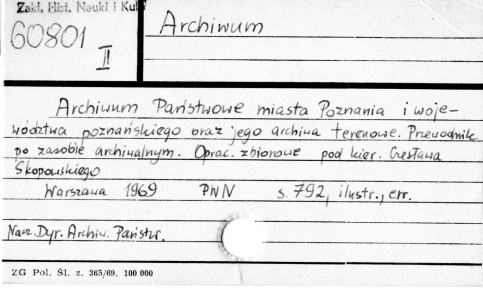 Zakł. Hist. Nauki i Kul
60801
II
Archiwum
Archiwum Państwowe miasta Poznania i woje-
wództwa poznańskiego oraz jego archiwa terenowe. Przewodnik
po zasobie archiwalnym. Oprac. zbiorowe pod kier. Czesława
Skopowskiego
Warszawa 1969 PWN s. 792, ilustr., err.
Nacz. Dyr. Archiw. Państw.
ZG Pol. Śl. z. 365/69. 100 000